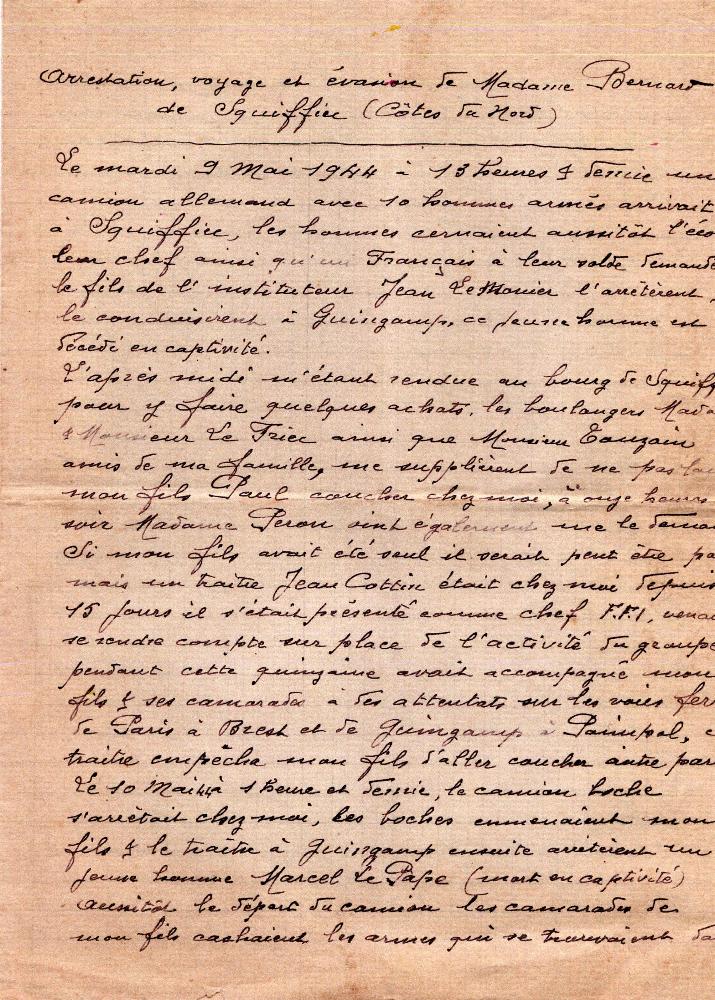 Arrestation, voyage et évasion de Madame Bernard
de Squiffiec (Côtes du Nord)
Le mardi 9 Mai 1944 à 13 heures & demie un
camion allemand avec 10 hommes armés arrivait
à Squiffiec, les hommes cernaient aussitôt l'éco
leur chef ainsi qu'un Français à leur solde demande
le fils de l'instituteur Jean Le Monier l'arrêtèrent,
le conduisirent à Guingamp, ce jeune homme est
décédé en captivité.
L'après midi m'étant rendue au bourg de Squiff
pour y faire quelques achats, les boulangers Mada
& Monsieur Le Friec ainsi que Monsieur Touzain
amis de ma famille, me supplièrent de ne pas lai
mon fils Paul coucher chez moi, à onze heures
soir Madame Peron vint également me le deman
Si mon fils avait été seul il serait peut être pa
mais un traitre Jean Cottin était chez moi depuis
15 jours il s'était présenté comme chef F.F.I, venai
se rendre compte sur place de l'activité du groupe
pendant cette quinzaine avait accompagné mon
fils & ses camarades à des attentats sur les voies fer
de Paris à Brest et de Guingamp à Paimpol, c
traitre empêcha mon fils d'aller coucher autre par
Le 10 Mai 44 à 1 heure et demie, le camion boche
s'arrêtait chez moi, les boches emmenaient mon
fils & le traitre à Guingamp ensuite arrêtèrent un
jeune homme Marcel Le Pape (mort en captivité)
Aussitôt le départ du camion les camarades de
mon fils cachaient les armes qui se trouvaient da